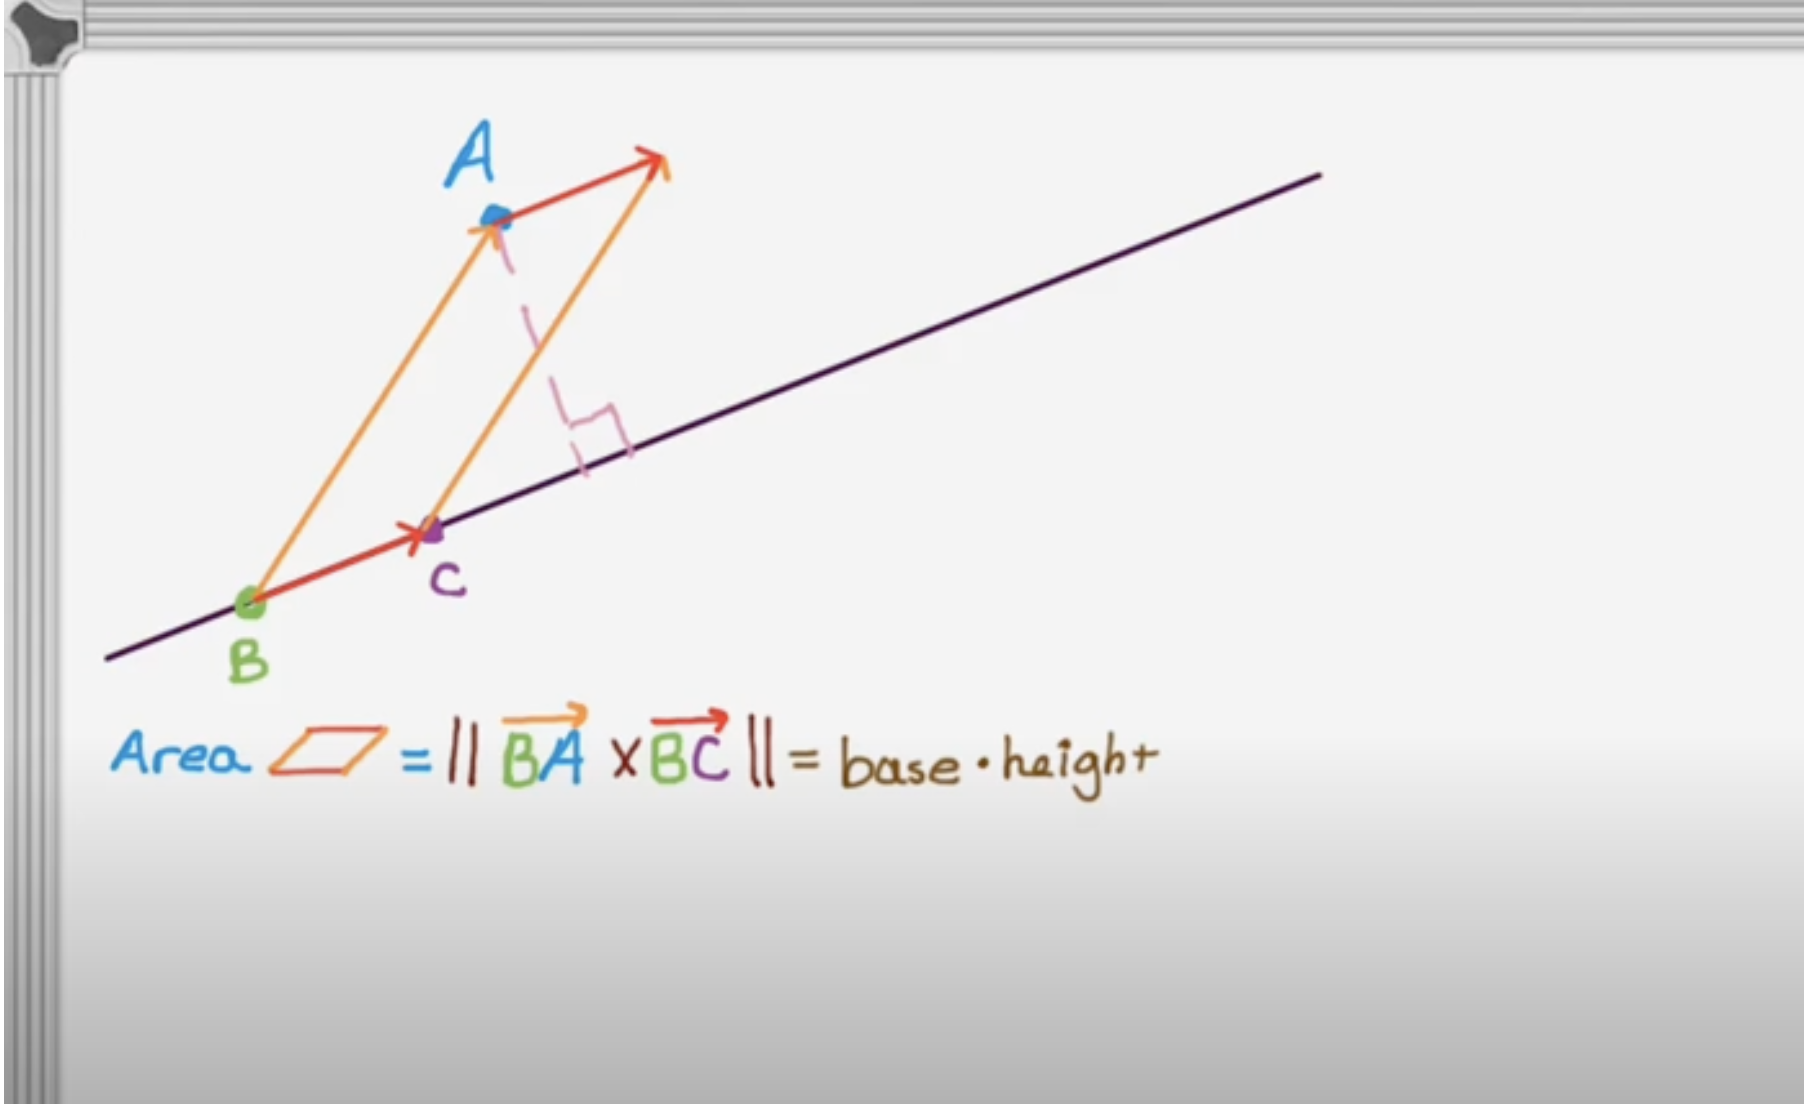 A
C
B
Area ▱ = || BA × BC || = base · height